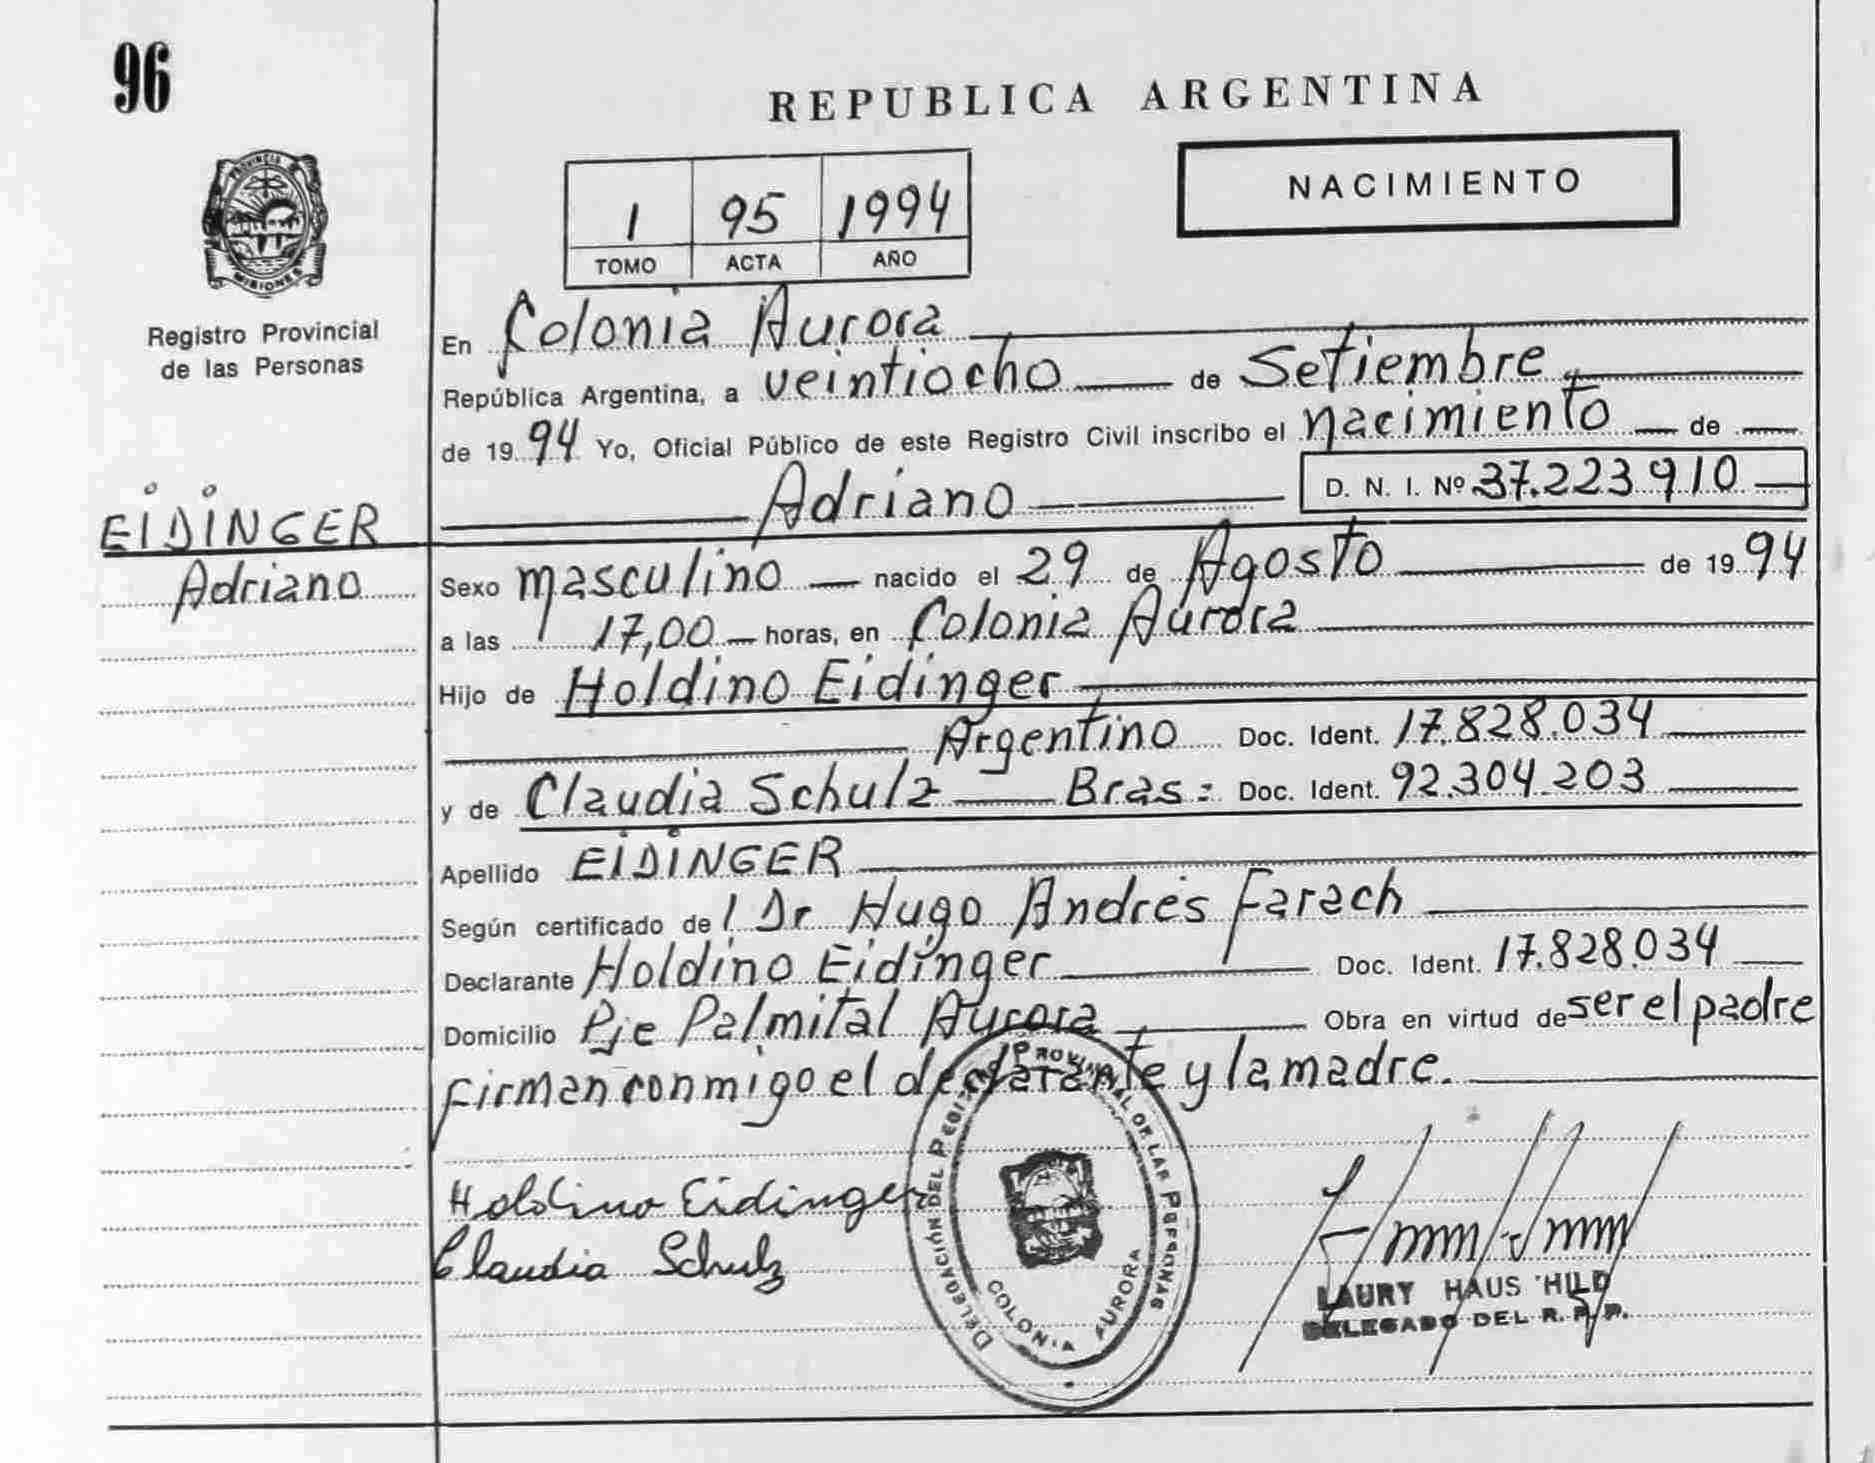 96
REPUBLICA ARGENTINA
NACIMIENTO
1 95 1994
TOMO ACTA AÑO
PROVINCIA DE
MISIONES
Registro Provincial
de las Personas
EIDINGER
Adriano
En Colonia Aurora
República Argentina, a veintiocho de Setiembre
de 1994 Yo, Oficial Público de este Registro Civil inscribo el nacimiento de
Adriano D. N. I. Nº 37.223.910
Sexo masculino nacido el 29 de Agosto de 1994
a las 17,00 horas, en Colonia Aurora
Hijo de Holdino Eidinger
Argentino Doc. Ident. 17.828.034
y de Claudia Schulz Bras: Doc. Ident. 92.304.203
Apellido EIDINGER
Según certificado del Dr Hugo Andrés Farach
Declarante Holdino Eidinger Doc. Ident. 17.828.034
Domicilio Pje Palmital Aurora Obra en virtud de ser el padre
Firman conmigo el declarante y la madre.
Holdino Eidinger
Claudia Schulz
DELEGACIÓN DEL REGISTRO PROVINCIAL DE LAS PERSONAS
COLONIA AURORA
LAURY HAUS HILD
DELEGADO DEL R. P. P.